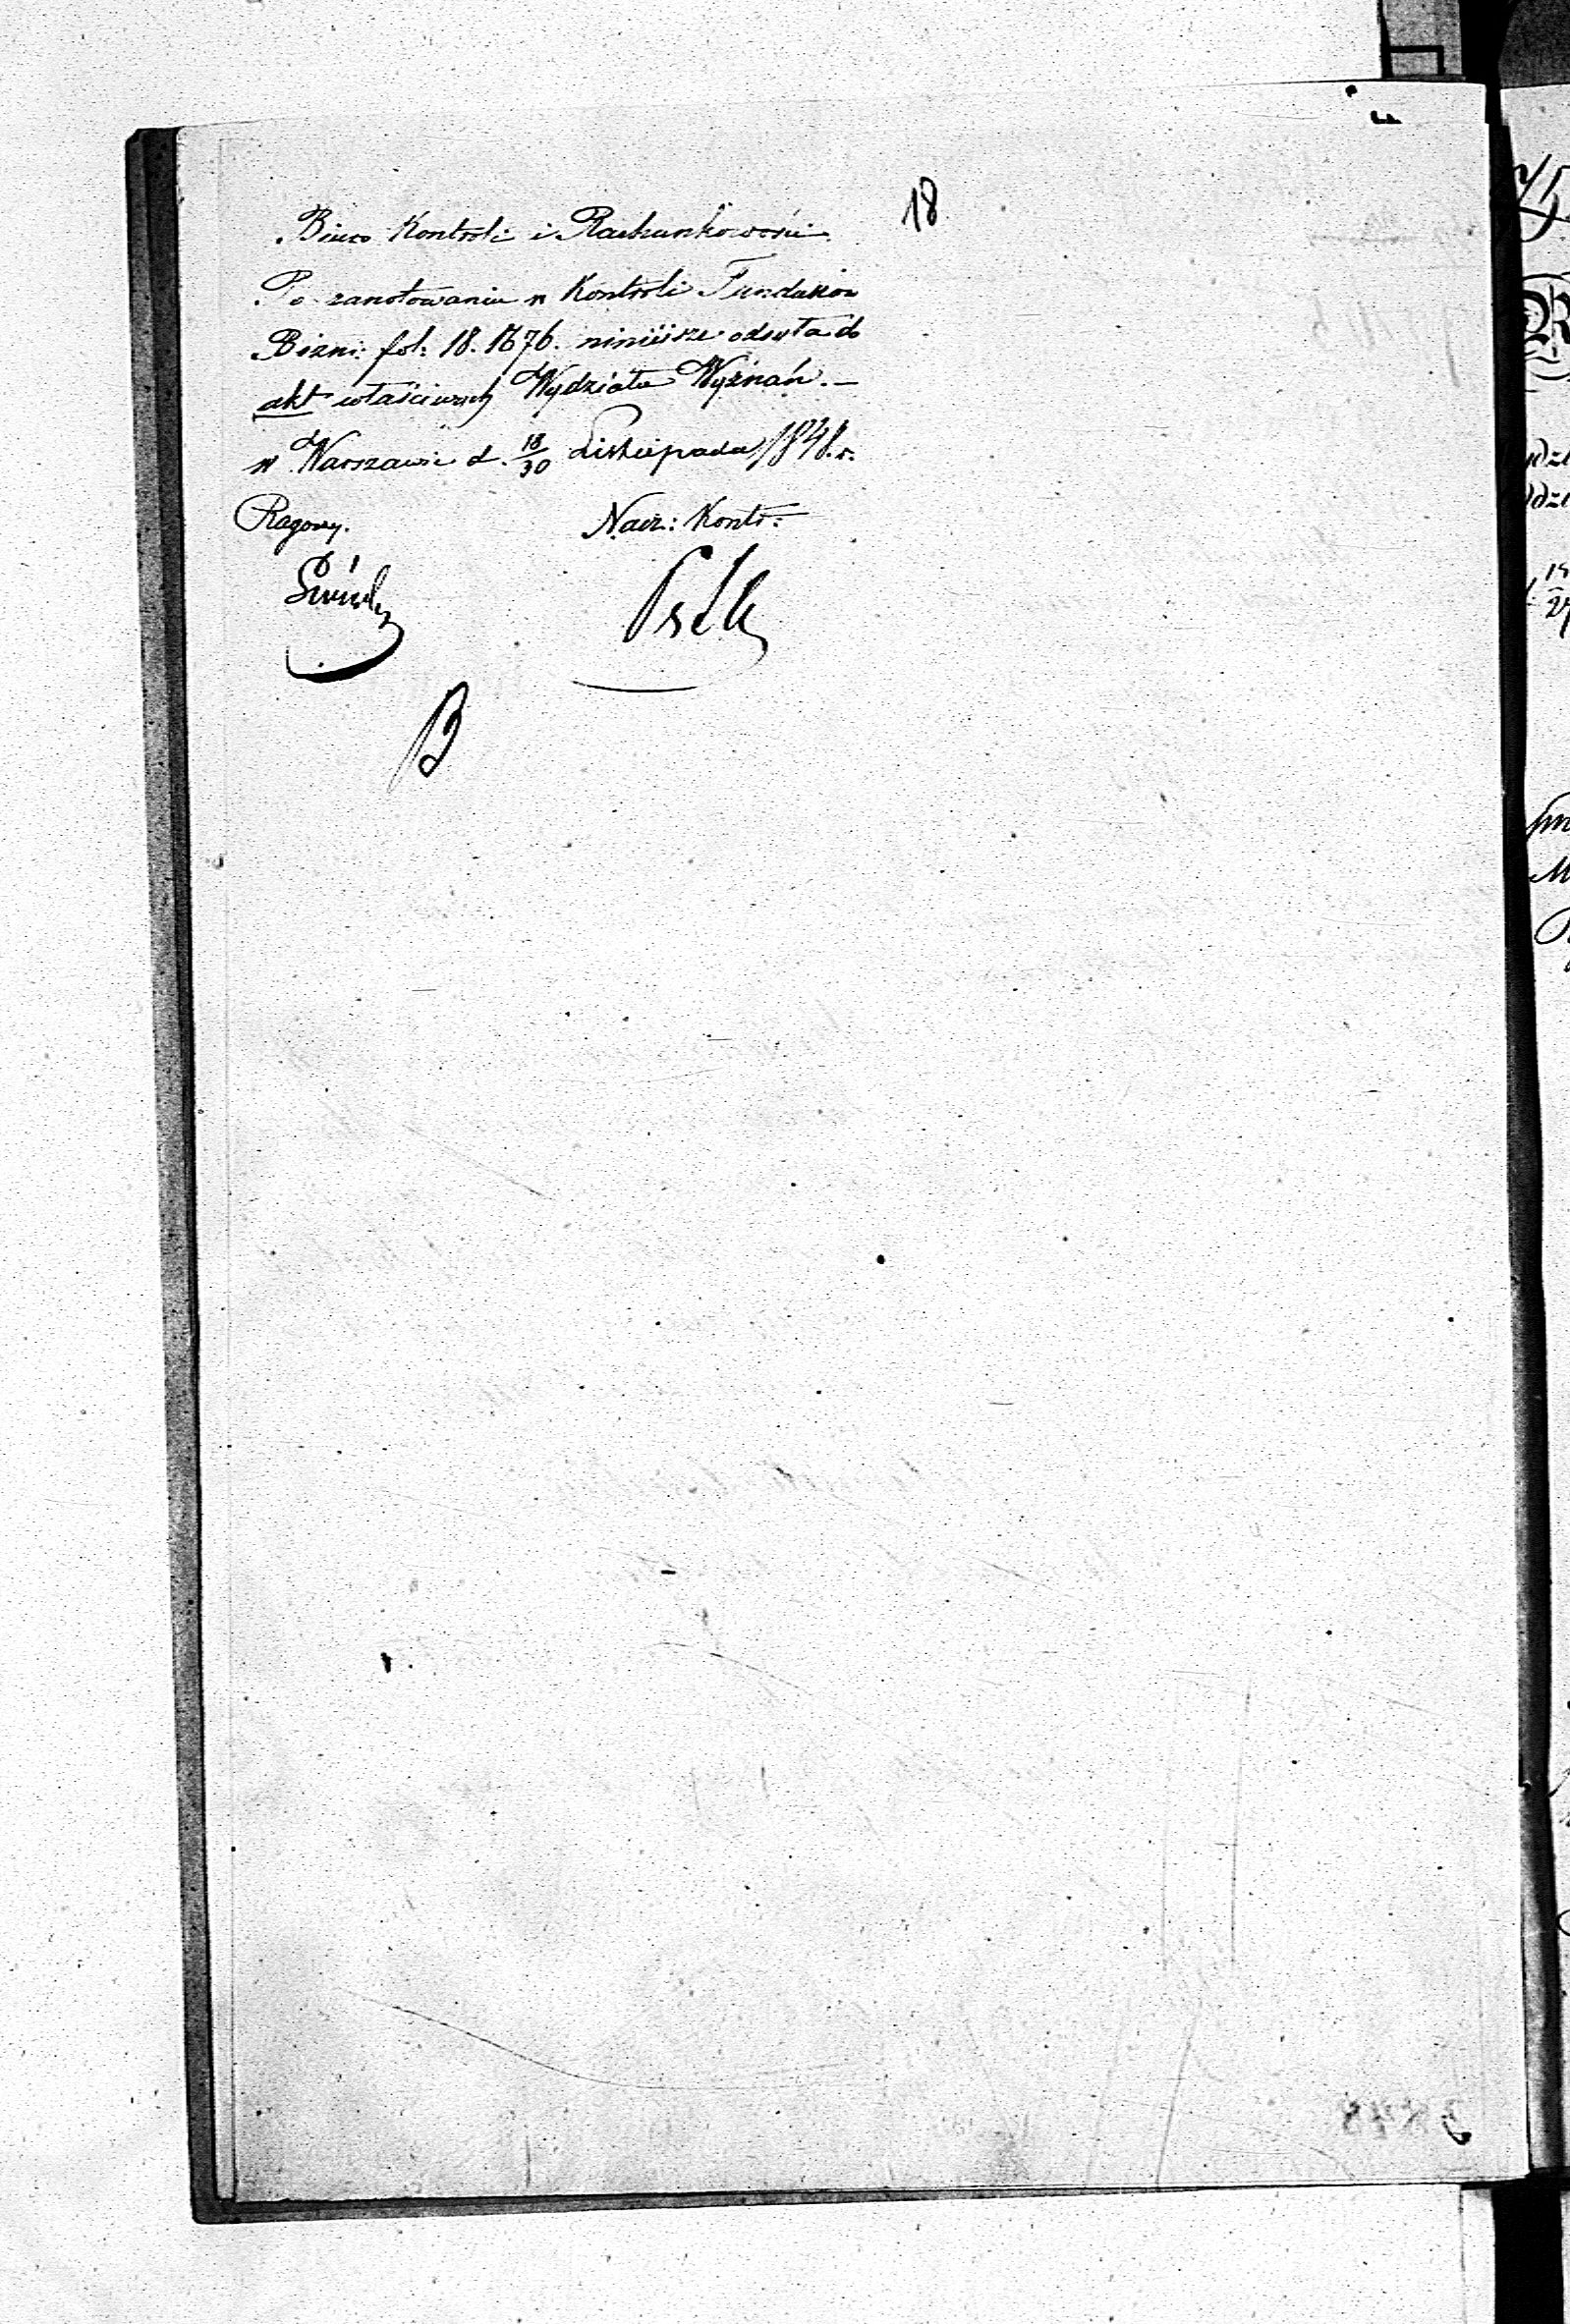 18
Biuro Kontroli i Rachunkowości
Po zanotowaniu w Kontroli Funduszów
fol: 18. 1676. niniéjsze odsyła do
akt właściwych Wydziału Wyznań. —
w Warszawie d. 18/30 Listopada 1848. r.
Nacz: Kontr:
B